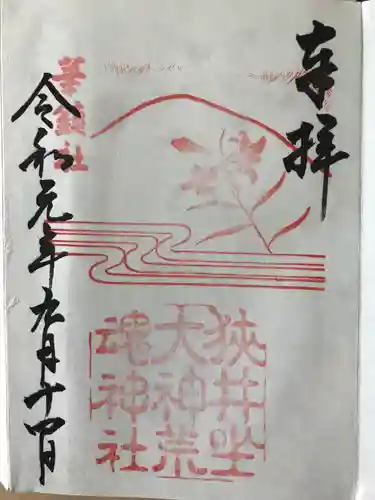 奉拝
華鎮社
狹井坐
大神荒
魂神社
令和元年九月十四日